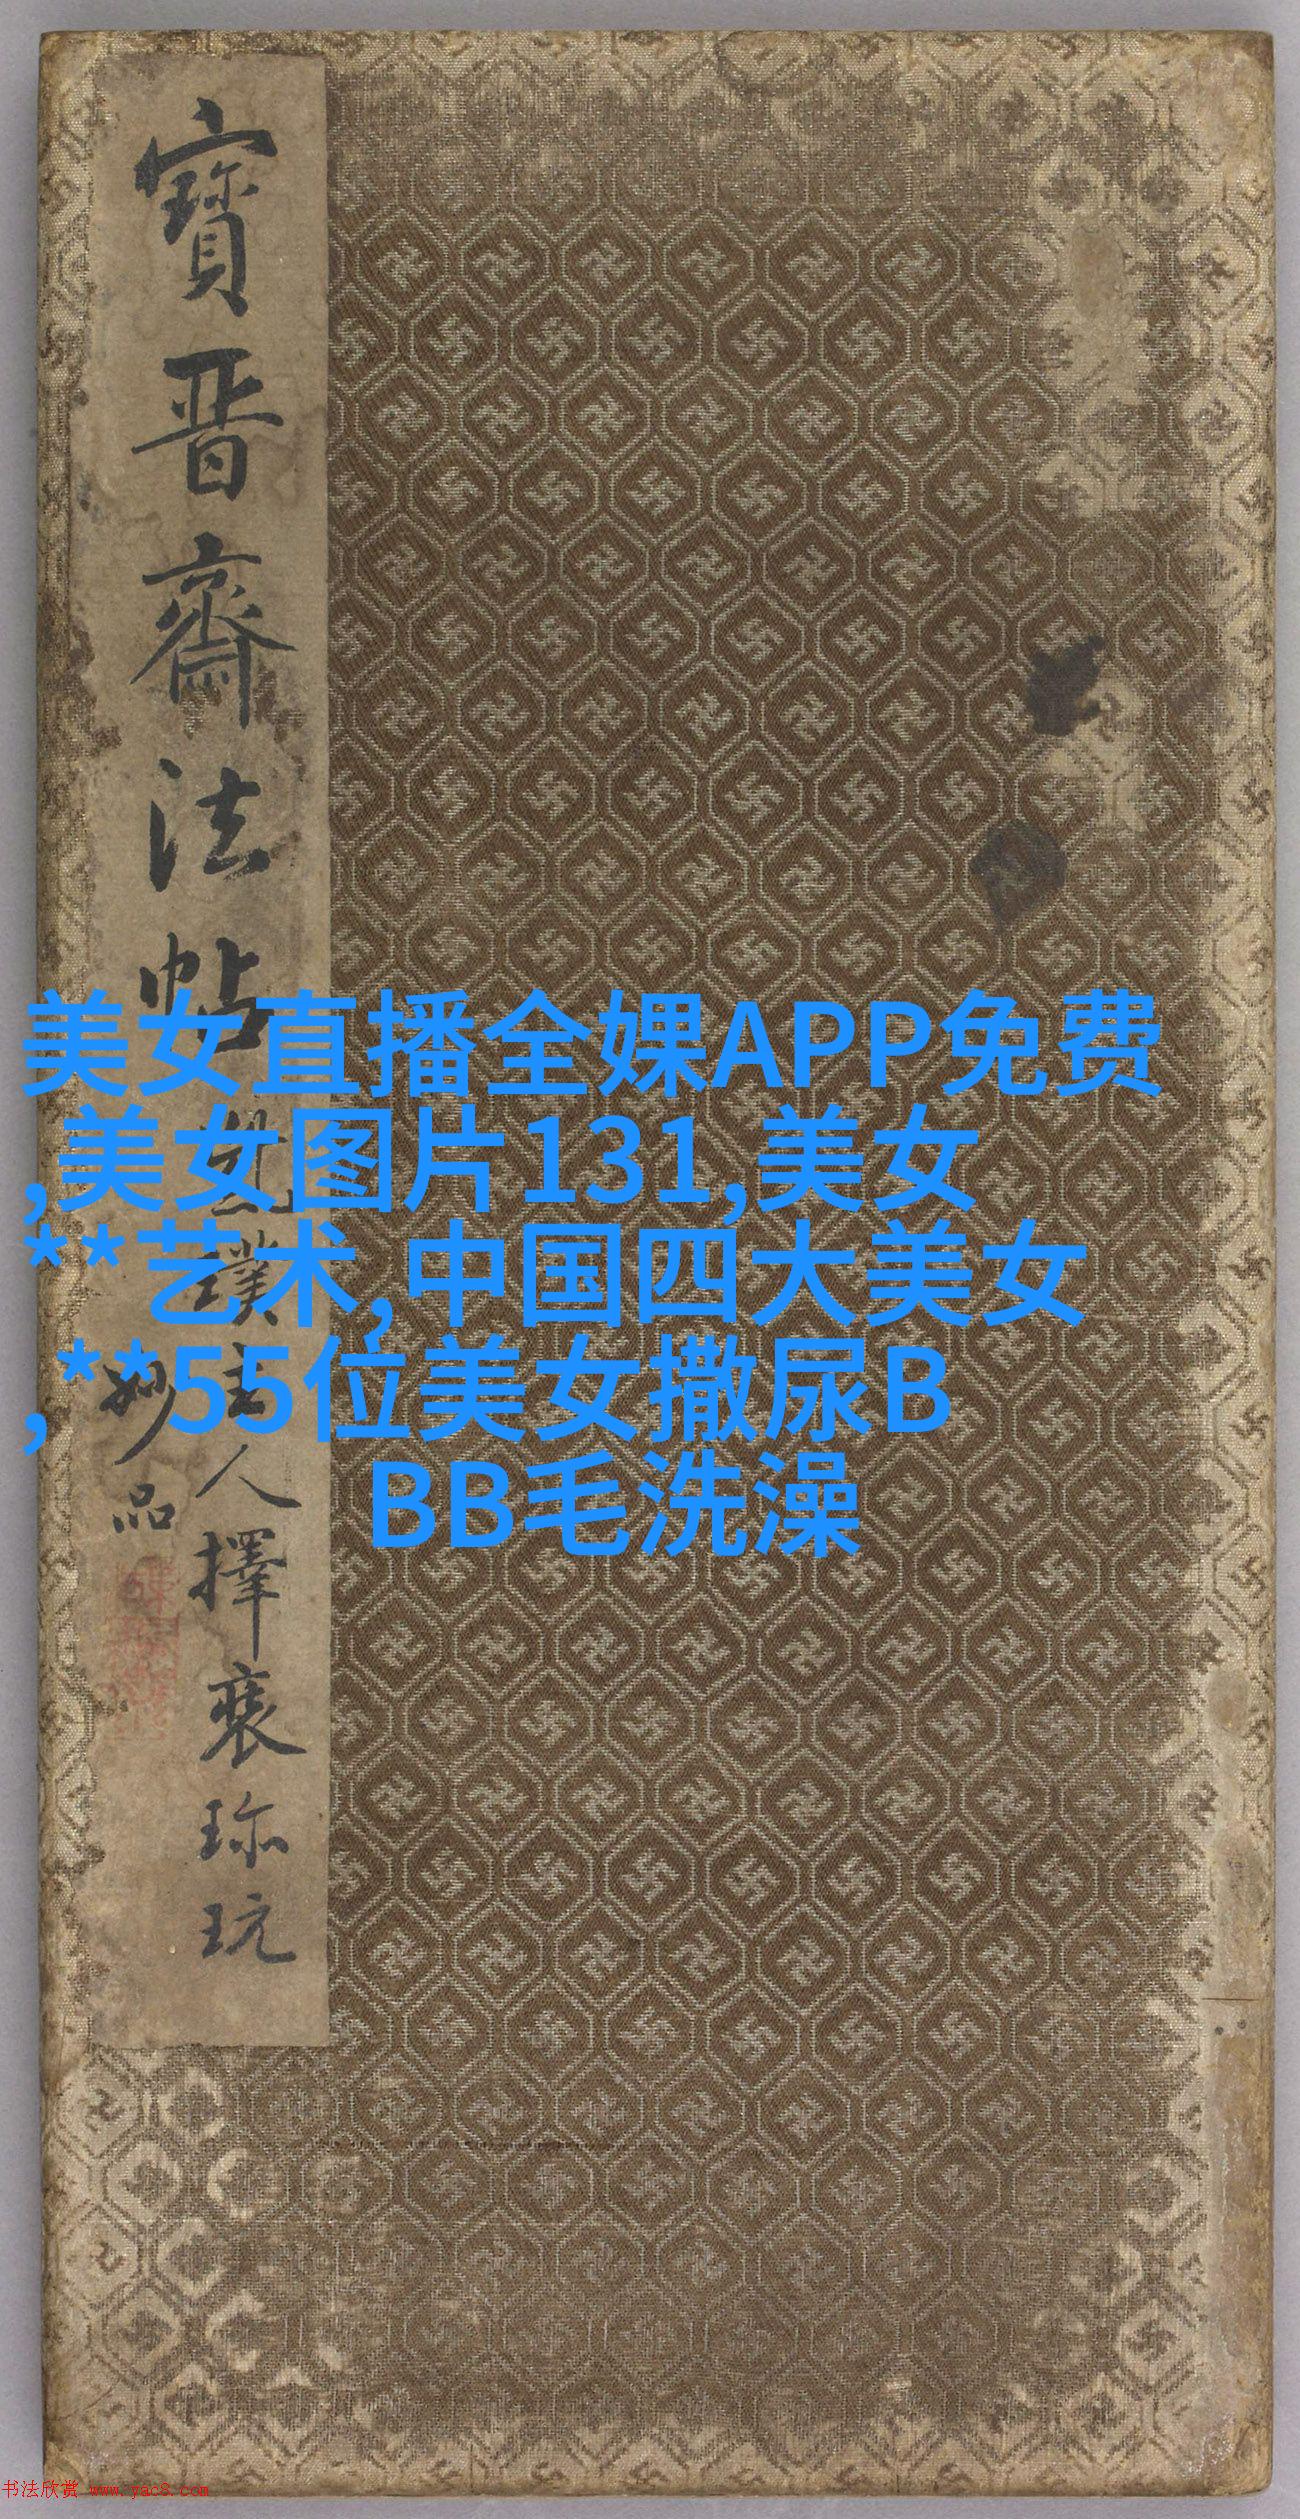 寶晋齋法帖
璞主人擇裘珎玩
妙品
美女直播全婐APP免费
,美女图片131,美女
**艺术,中国四大美女
,**55位美女撒尿B
BB毛洗澡
书法欣赏 www.yac8.com